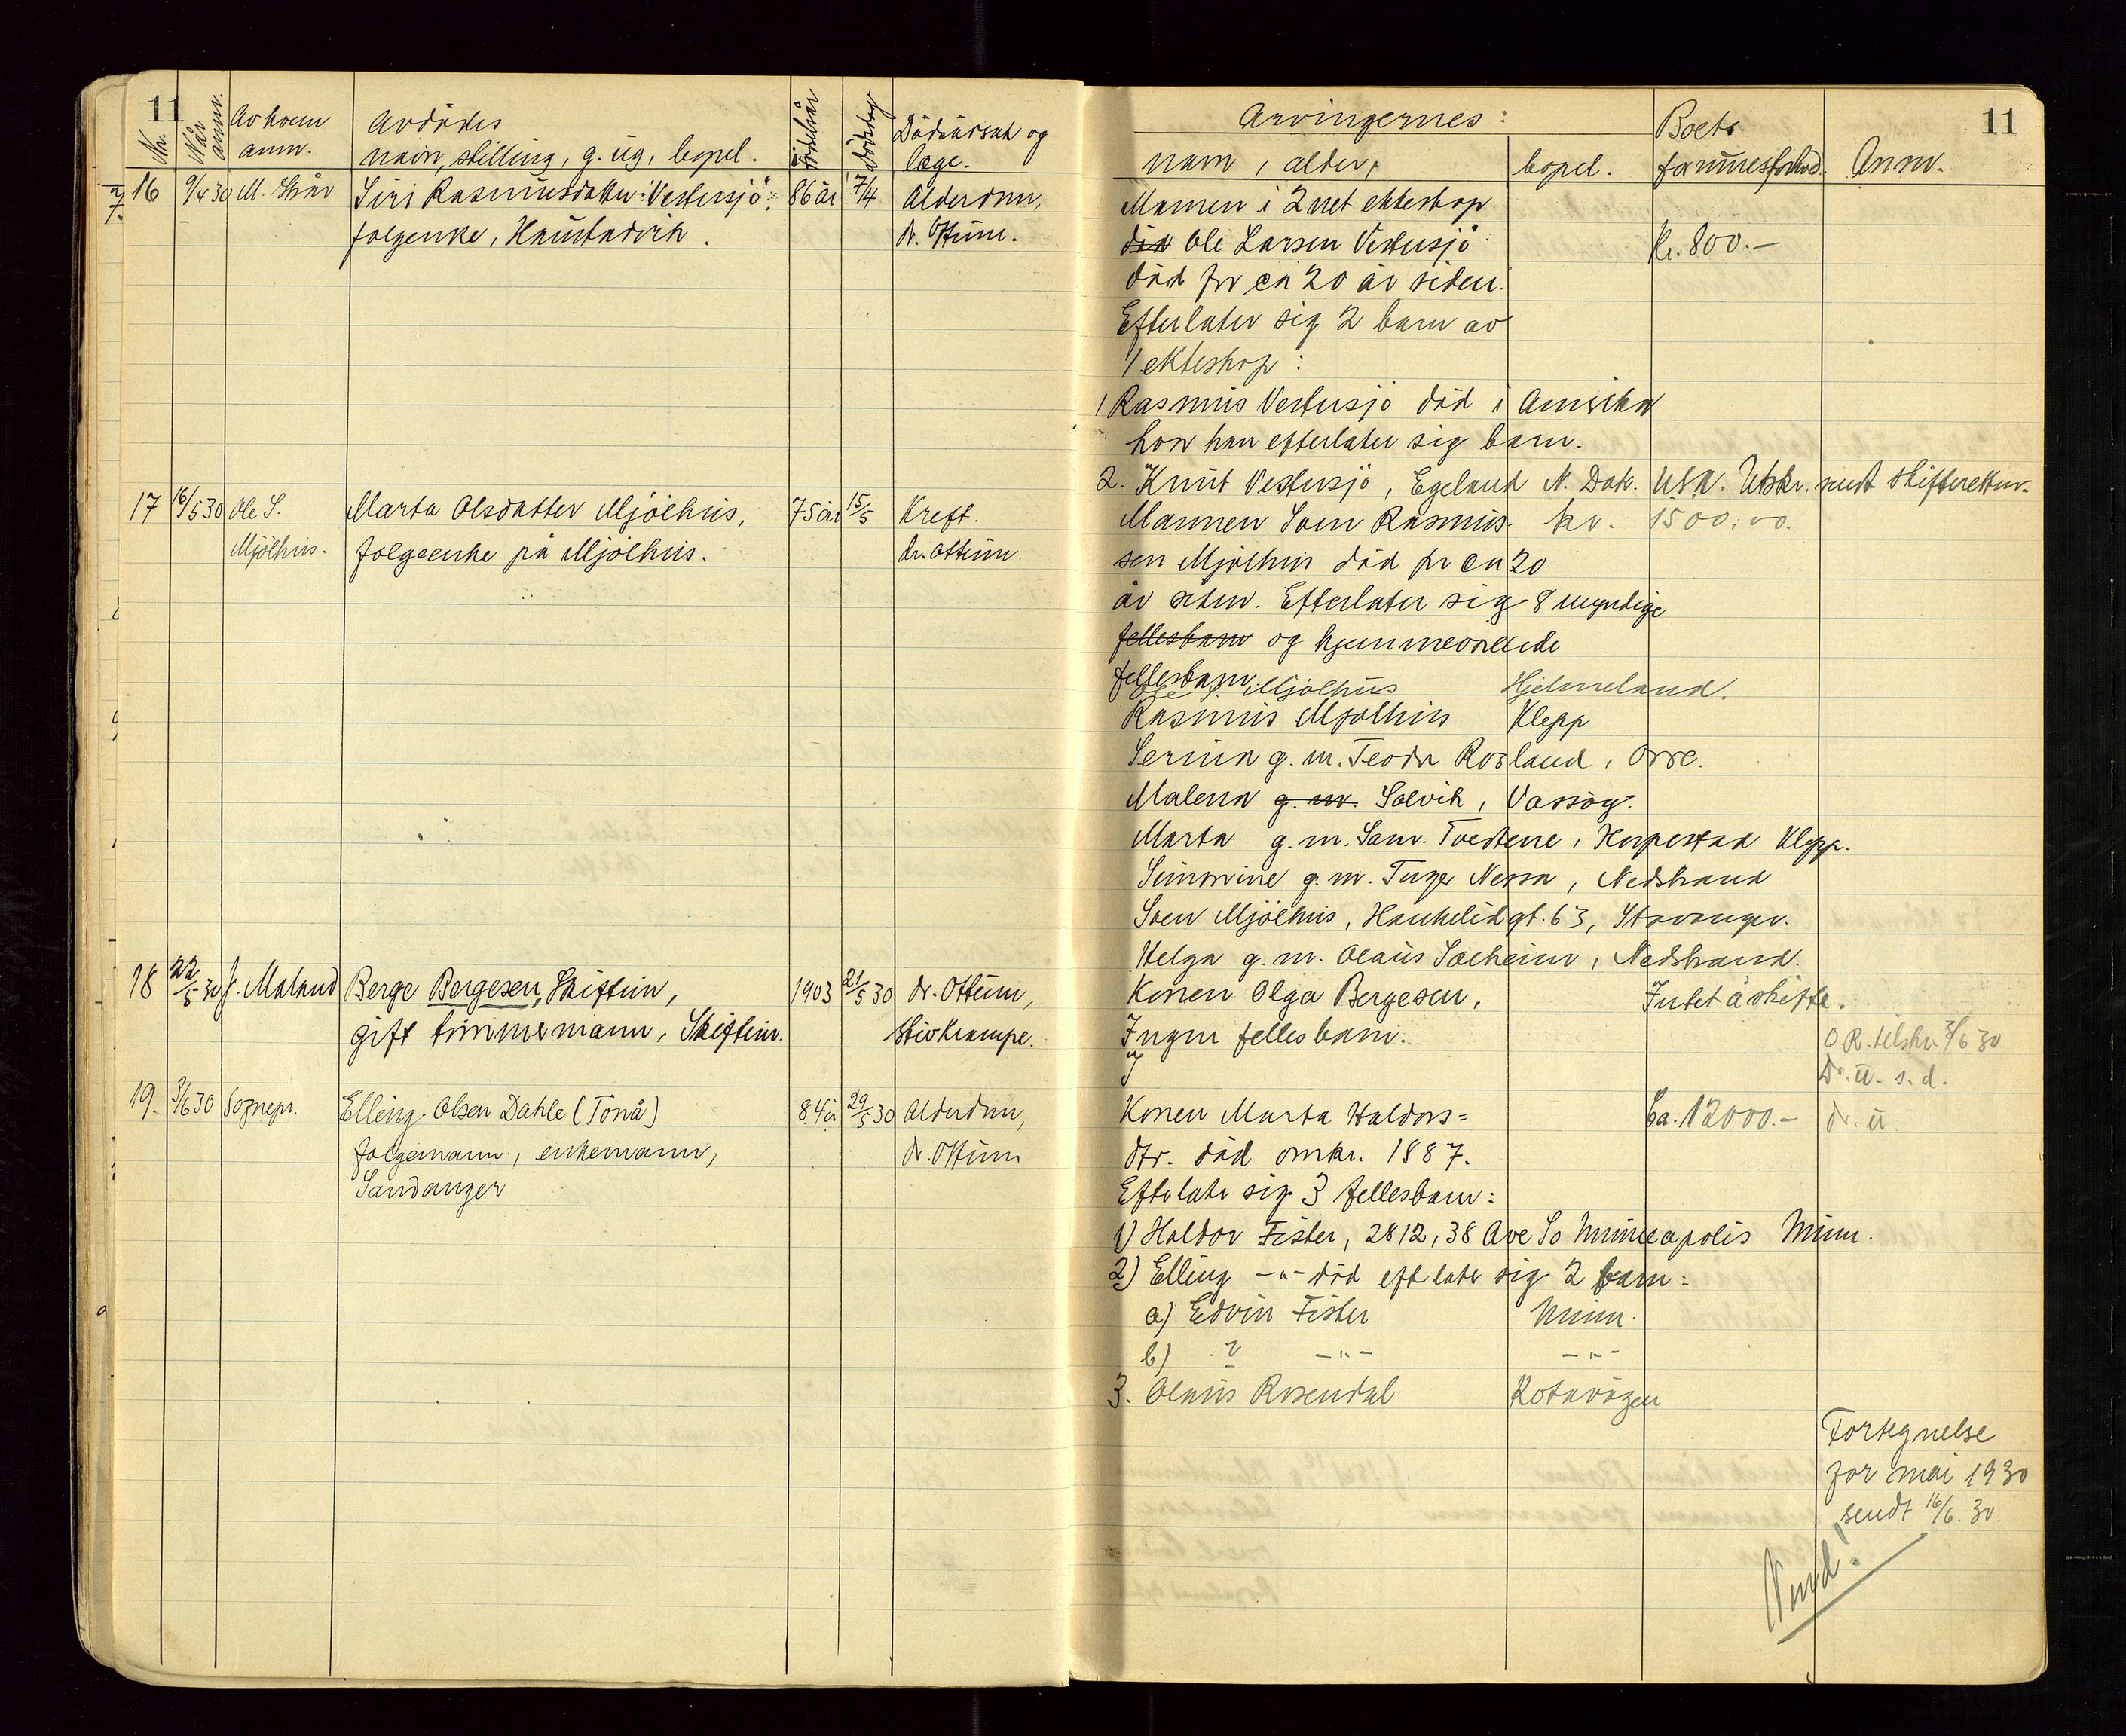 11
Nr.
Når anm.
Av hvem anm.
Avdødes
navn, stilling, g. ug., bopel.
Fødselsår
Dødsdag
Dødsårsak og
læge.
16 9/4 30 M. Skår Siri Rasmusdatter Vestersjø, 86 år 7/4 Alderdom,
folgeenke, Haustadvik. dr. Ottum.
17 16/5 30 Ole S. Marta Olsdatter Mjølhus, 75 år 15/5 Kreft.
Mjølhus. folgeenke på Mjølhus. dr. Ottum.
18 22/5 30 J. Maland Berge Bergesen, Skiftun, 1903 21/5 30 dr. Ottum,
gift timmermann, Skiftun. Stivkrampe.
19. 3/6 30 Sognepr. Elling Olsen Dahle (Tonå) 84 år 29/5 30 Alderdom,
folgemann, enkemann, dr. Ottum
Sandanger
Arvingernes: 11
navn, alder, bopel. Boets formuesforhod. Anm.
Mannen i 2net ekteskap
Ole Larsen Vestersjø Kr. 800.-
død for ca 20 år siden.
Efterlater sig 2 barn av
1 ekteskap:
1 Rasmus Vestersjø død i Amerika
hvor han efterlater sig barn.
2. Knut Vestersjø, Egeland N. Dak. U.S.A. Utskr. sendt skifteretten.
Mannen Soen Rasmus- kr. 1500.00.
sen Mjølhus død for ca 20
år siden. Efterlater sig 8 myndige
fellesbarn og hjemmeværende
fellesbarn
Ole S. Mjølhus Hjelmeland.
Rasmus Mjølhus Klepp
Serina g. m. Teodor Rosland, Orre.
Malena g. m. Solvik, Vassøy.
Marta g. m. Sam. Tvedtene, Horpestad Klepp.
Simonine g. m. Inger Nessa, Nedstrand
Soen Mjølhus, Haukeligt. 63, Stavanger.
Helga g. m. Olaus Solheim, Nedstrand.
Konen Olga Bergesen, Intet å skifte.
Ingen fellesbarn.
O.R. tilskr. 3/6 30
Dr. u. s. d.
Konen Marta Haldors= Ca. 12000.- dr. u.
dtr. død omkr. 1887.
Efterlate sig 3 fellesbarn:
1) Haldor Fister, 2812, 38 Ave So Minneapolis Minn.
2) Elling -"- død eft late sig 2 barn:
a) Edvin Fister Minn.
b) ? -"- -"-
3. Olaus Rosendal Kotavågen
Fortegnelse
for mai 1930
sendt 16/6. 30.